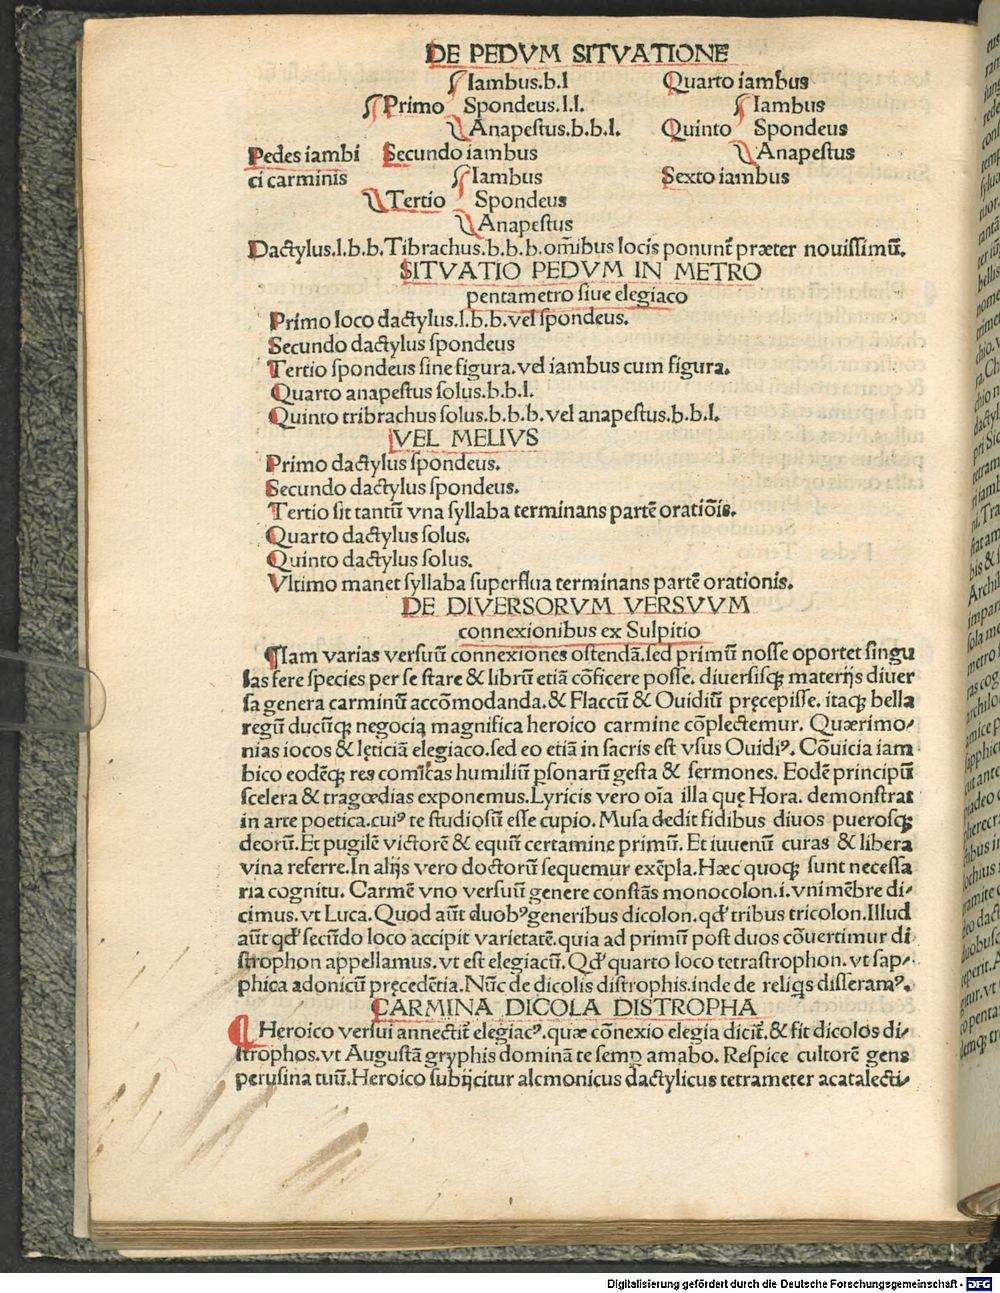 DE PEDVM SITVATIONE
Iambus.b.l
Primo Spondeus.l.l.
Anapeſtus.b.b.l.
Pedes iambi
ci carminis
Secundo iambus
Iambus
Tertio Spondeus
Anapeſtus
Quarto iambus
Iambus
Quinto Spondeus
Anapeſtus
Sexto iambus
Dactylus.l.b.b.Tibrachus.b.b.b.om̄ibus locis ponunt̄ præter nouiſſimū.
SITVATIO PEDVM IN METRO
pentametro ſiue elegiaco
Primo loco dactylus.l.b.b.vel ſpondeus.
Secundo dactylus ſpondeus
Tertio ſpondeus ſine figura.vel iambus cum figura.
Quarto anapeſtus ſolus.b.b.l.
Quinto tribrachus ſolus.b.b.b.vel anapeſtus.b.b.l.
VEL MELIVS
Primo dactylus ſpondeus.
Secundo dactylus ſpondeus.
Tertio ſit tantū vna ſyllaba terminans partē oratiōis.
Quarto dactylus ſolus.
Quinto dactylus ſolus.
Vltimo manet ſyllaba ſuperflua terminans partē orationis.
DE DIVERSORVM VERSVVM
connexionibus ex Sulpitio
Nam varias verſuū connexiones oſtendā.ſed primū noſſe oportet ſingu
las fere ſpecies per ſe ſtare & librū etiā cōficere poſſe. diuerſiſqꝫ materijs diuer
ſa genera carminū accōmodanda.& Flaccū & Ouidiū pręcepiſſe. itaqꝫ bella
regū ducūqꝫ negocia magnifica heroico carmine cōplectemur. Quærimo-
nias iocos & lęticiā elegiaco.ſed eo etiā in ſacris eſt vſus Ouidiꝰ. Cōuicia iam
bico eodēqꝫ res comicas humiliū ꝑſonarū geſta & ſermones. Eodē principū
ſcelera & tragœdias exponemus.Lyricis vero oīa illa quę Hora. demonſtrat
in arte poetica.cuiꝰ te ſtudioſū eſſe cupio. Muſa dedit fidibus diuos pueroſqꝫ
deorū.Et pugilē victorē & equū certamine primū. Et iuuenū curas & libera
vina referre.In alijs vero doctorū ſequemur exēpla.Hæc quoqꝫ ſunt neceſſa
ria cognitu. Carmē vno verſuū genere conſtās monocolon.i.vnimēbre di-
cimus.vt Luca. Quod aūt duobꝰgeneribus dicolon.qd̓ tribus tricolon.Illud
aūt qd̓ ſecūdo loco accipit varietatē.quia ad primū poſt duos cōuertimur di
ſtrophon appellamus.vt eſt elegiacū.Qd̓ quarto loco tetraſtrophon.vt ſap-
phica adonicū pręcedētia.Nūc de dicolis diſtrophis.inde de reliqs diſſeramꝰ.
CARMINA DICOLA DISTROPHA
Heroico verſui annectit̄ elegiacꝰ.quæ cōnexio elegia dicit̄.& fit dicolos di-
ſtrophos.vt Auguſtā gryphis dominā te ſemꝑ amabo. Reſpice cultorē gens
peruſina tuū.Heroico ſubijcitur alcmonicus dactylicus tetrameter acatalecti-
Digitalisierung gefördert durch die Deutsche Forschungsgemeinschaft - DFG